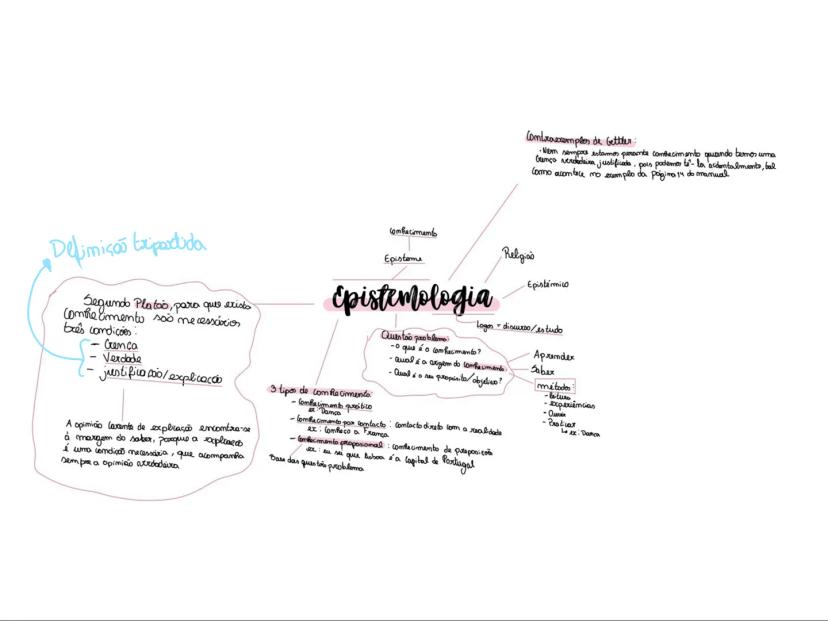 Contraexemplos de Gettier:
· Nem sempre estamos perante conhecimento quando temos uma
crença verdadeira justificada, pois podemos tê-la acidentalmente, tal
como acontece no exemplo da página 14 do manual
Conhecimento
Episteme
Religião
Definição tripartida
Epistemologia
Epistémico
Logos = discurso/estudo
Segundo Platão, para que exista
conhecimento são necessários
três condições:
- Crença
- Verdade
- justificação/explicação
A opinião carente de explicação encontra-se
à margem do saber, porque a explicação
é uma condição necessária, que acompanha
sempre a opinião
Questão problema:
- O que é o conhecimento?
- Qual é a origem do conhecimento
- Qual é o seu propósito/objetivo?
Aprender
Saber
métodos:
- leitura
- experiências
- Ouvir
- Praticar
↳ ex: Dança
3 tipos de conhecimento:
- Conhecimento prático
ex: Dança
- Conhecimento por contacto: contacto direto com a realidade
ex: Conheço a França
- Conhecimento proposicional: conhecimento de proposições
ex: eu sei que lisboa é a capital de Portugal
Base das questões problema